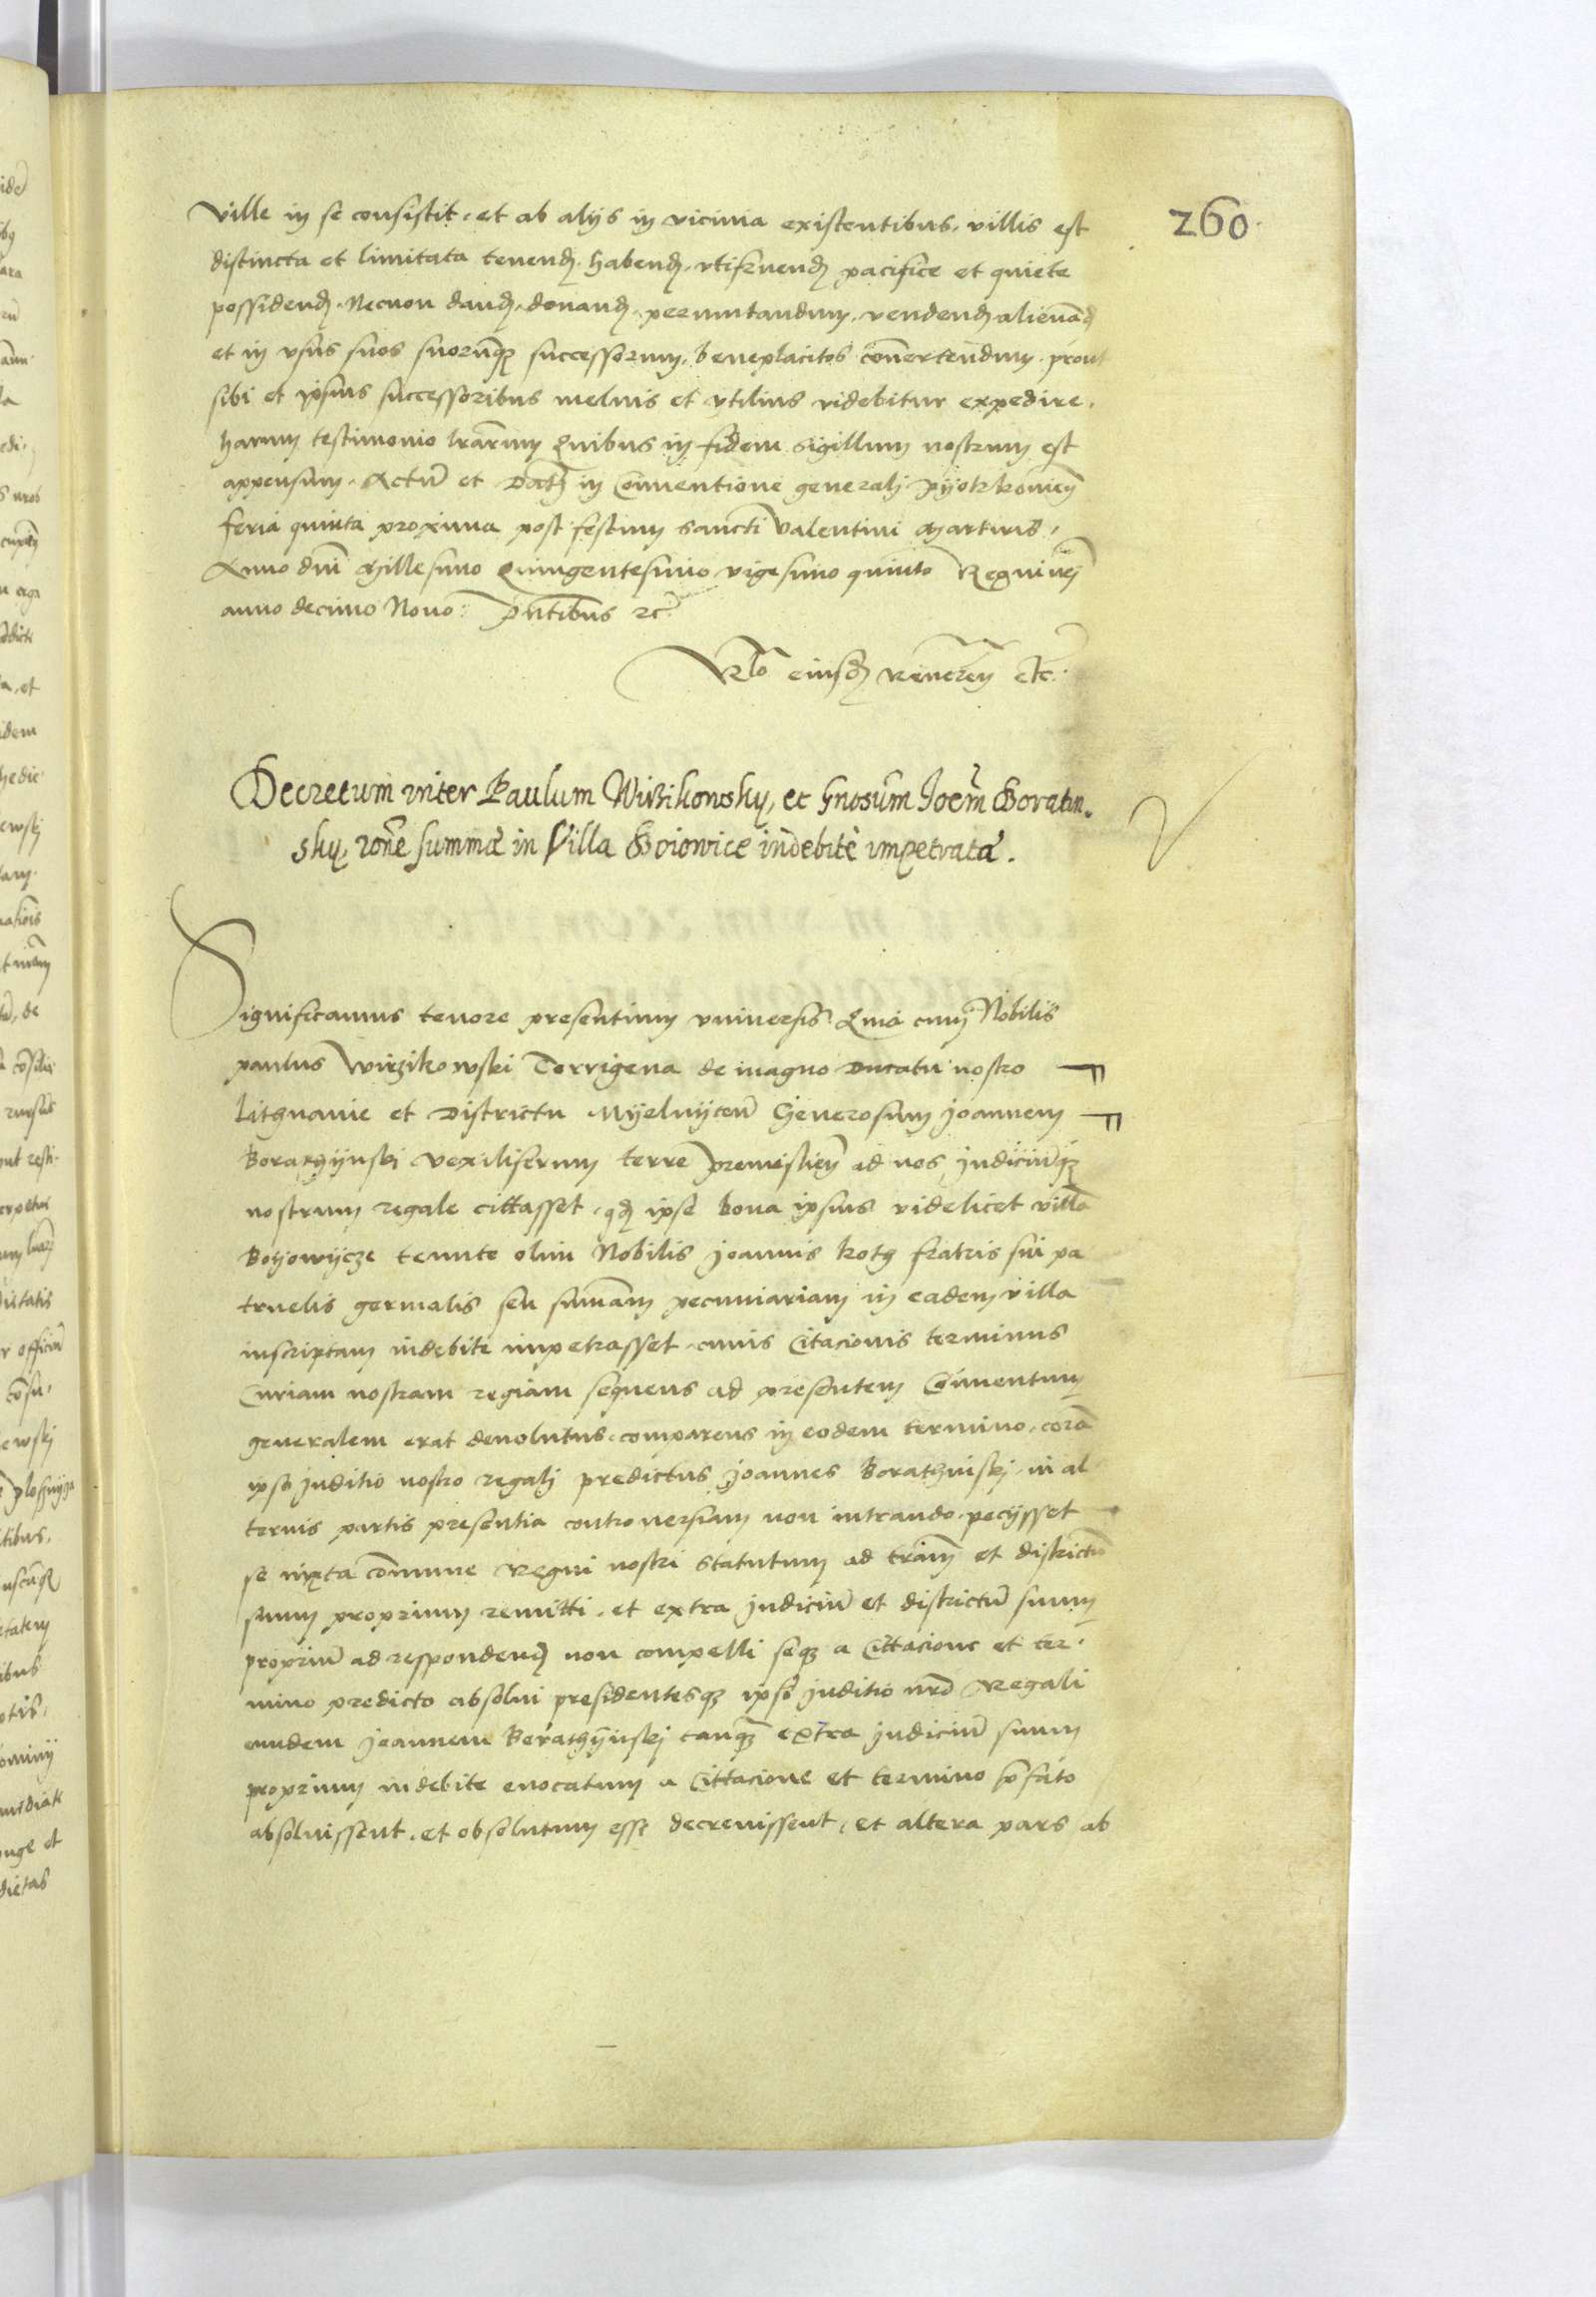 260.
ville in se consistit. et ab alijs in vicinia existentibus. villis est
distincta et limitata tenend. habend. utifruend pacifice et quiete
possidend. Necnon dand. donand. permutandum. vendend alienad
et in usus suos suorumque successorum. beneplacitos convertendum. prout
sibi et ipsius successoribus melius et utilius videbitur expedire.
harum testimonio lrarum Quibus in fidem sigillum nostrum est
appensum. Actu et Dat in Conventione generalj Pyotrkowien
feria quinta proxima post festum Sancti Valentini Marturis.
Anno dni Millesimo Quingentesimo vigesimo quinto Regni nri
anno decimo Nono: Pntibus etc
Rlo eiusd Reveren etc.
Decretum inter Paulum Wirzikowsky, et Gnosum Joem Boratin.
sky, rone summæ in Villa Boiowice indebite impetrata.
Significamus tenore presentium universis. Quia cum Nobilis
paulus Wirzikowski Terrigena de magno Ducatu nostro
Lithuanie et Districtu Myelnijcen Generosum joannem
Borathijnski vexiliferum terre premislien ad nos judiciumque
nostrum regale cittasset. qd ipse bona ipsius videlicet villa
Boyowijcze tente olim Nobilis joannis koth fratris sui pa
truelis germalis seu summam pecuniariam in eadem villa
inscriptam indebite impetrasset. cuius Citacionis terminus
Curiam nostram regiam sequens ad presentem Conventum
generalem erat devolutus. comparens in eodem termino. cora
ipso juditio nostro regalj predictus joannes Borathinskj. in al
terius partis presentia controversiam non intrando. pecijsset
se iuxta comune Regni nostri statutum ad tram et districtu
suum proprium remitti. et extra judiciu et districtu suum
propriu ad respondend non compelli seque a Cittacione et ter.
mino predicto absolvi presidentesque ipso juditio nro Regali
eundem joannem Berathijnskj tanque extra judiciu suum
proprium indebite evocatum a Cittacione et termino prefato
absolvissent. et obsolutum esse decrevissent. et altera pars ab